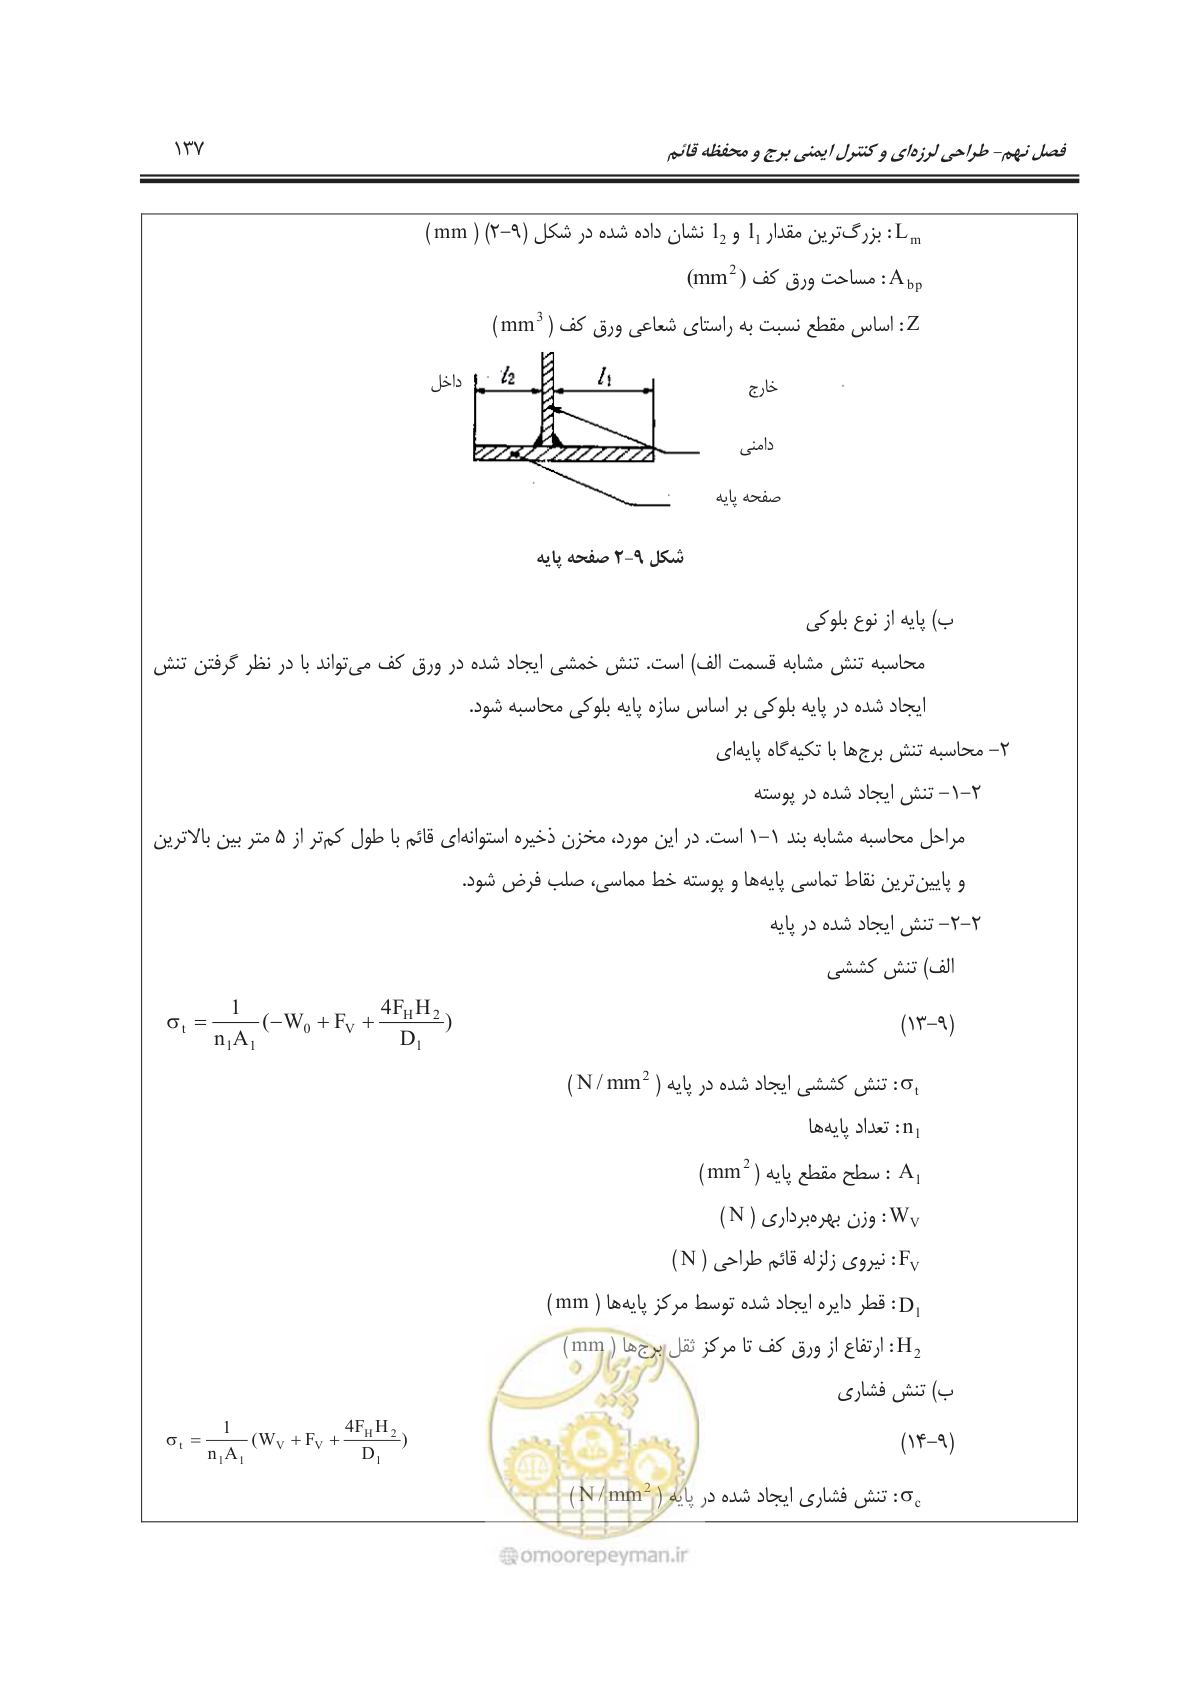 فصل نهم- طراحی لرزه‌ای و کنترل ایمنی برج و محفظه قائم ۱۳۷
L_m: بزرگ‌ترین مقدار l_1 و l_2 نشان داده شده در شکل (۹-۲) (mm)
A_bp: مساحت ورق کف (mm^2)
Z: اساس مقطع نسبت به راستای شعاعی ورق کف (mm^3)
داخل l_2 l_1 خارج
دامنی
صفحه پایه
شکل ۹-۲ صفحه پایه
ب) پایه از نوع بلوکی
محاسبه تنش مشابه قسمت الف) است. تنش خمشی ایجاد شده در ورق کف می‌تواند با در نظر گرفتن تنش
ایجاد شده در پایه بلوکی بر اساس سازه پایه بلوکی محاسبه شود.
۲- محاسبه تنش برج‌ها با تکیه‌گاه پایه‌ای
۲-۱- تنش ایجاد شده در پوسته
مراحل محاسبه مشابه بند ۱-۱ است. در این مورد، مخزن ذخیره استوانه‌ای قائم با طول کم‌تر از ۵ متر بین بالاترین
و پایین‌ترین نقاط تماسی پایه‌ها و پوسته خط مماسی، صلب فرض شود.
۲-۲- تنش ایجاد شده در پایه
الف) تنش کششی
(۹-۱۳) σ_t = 1/(n_1A_1) (−W_0 + F_V + 4F_HH_2/D_1)
σ_t: تنش کششی ایجاد شده در پایه (N/mm^2)
n_1: تعداد پایه‌ها
A_1 : سطح مقطع پایه (mm^2)
W_V: وزن بهره‌برداری (N)
F_V: نیروی زلزله قائم طراحی (N)
D_1: قطر دایره ایجاد شده توسط مرکز پایه‌ها (mm)
H_2: ارتفاع از ورق کف تا مرکز ثقل برج‌ها (mm)
ب) تنش فشاری
(۹-۱۴) σ_t = 1/(n_1A_1) (W_V + F_V + 4F_HH_2/D_1)
σ_c: تنش فشاری ایجاد شده در پایه (N/mm^2)
امور پیمان
@omoorepeyman.ir